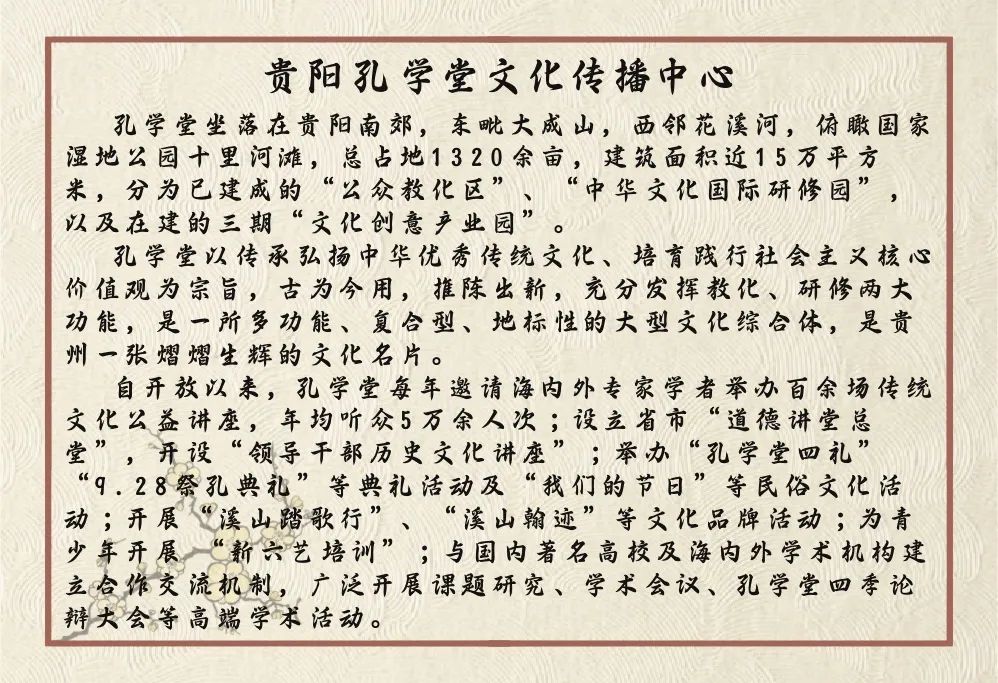 贵阳孔学堂文化传播中心
孔学堂坐落在贵阳南郊，东毗大成山，西邻花溪河，俯瞰国家
湿地公园十里河滩，总占地1320余亩，建筑面积近15万平方
米，分为已建成的“公众教化区”、“中华文化国际研修园”，
以及在建的三期“文化创意产业园”。
孔学堂以传承弘扬中华优秀传统文化、培育践行社会主义核心
价值观为宗旨，古为今用，推陈出新，充分发挥教化、研修两大
功能，是一所多功能、复合型、地标性的大型文化综合体，是贵
州一张熠熠生辉的文化名片。
自开放以来，孔学堂每年邀请海内外专家学者举办百余场传统
文化公益讲座，年均听众5万余人次；设立省市“道德讲堂总
堂”，开设“领导干部历史文化讲座”；举办“孔学堂四礼”
“9.28祭孔典礼”等典礼活动及“我们的节日”等民俗文化活
动；开展“溪山踏歌行”、“溪山翰迹”等文化品牌活动；为青
少年开展“新六艺培训”；与国内著名高校及海内外学术机构建
立合作交流机制，广泛开展课题研究、学术会议、孔学堂四季论
辩大会等高端学术活动。